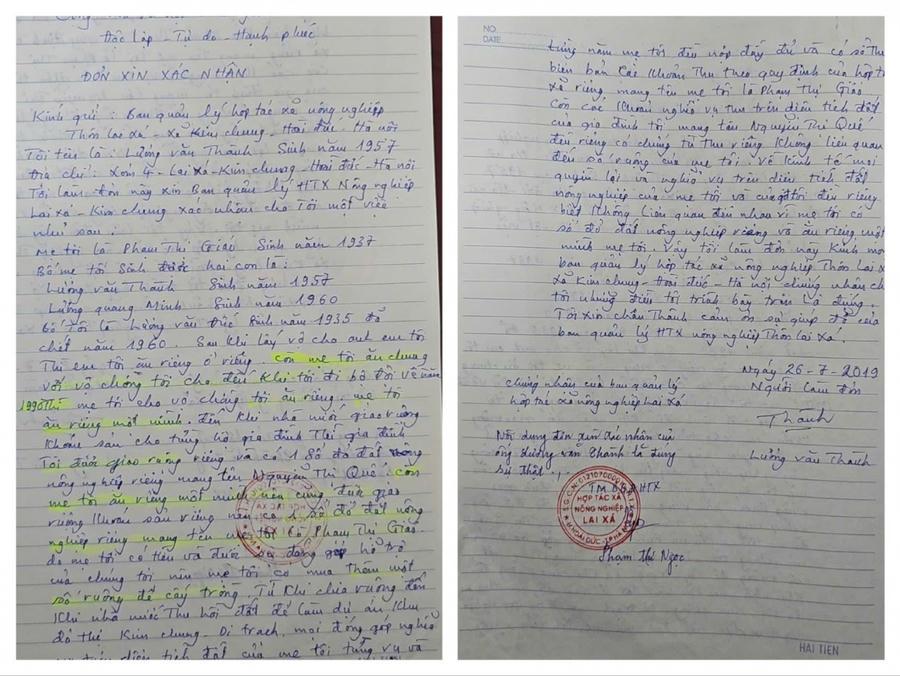 Độc lập - Tự do - Hạnh phúc
ĐƠN XIN XÁC NHẬN
Kính gửi : Ban quản lý hợp tác xã nông nghiệp
Thôn lai xá - Xã Kim chung - Hoài đức - Hà nội
Tôi tên là : Lương văn Thành Sinh năm 1957
Địa chỉ : Xóm 4 - Lai xá - Kim chung - Hoài đức - Hà nội
Tôi làm đơn này xin Ban quản lý HTX Nông nghiệp
Lai xá - Kim chung xác nhận cho Tôi một việc
như sau :
Mẹ tôi là Phạm Thị Giáo Sinh năm 1937
Bố mẹ tôi Sinh được hai con là :
Lương văn Thành Sinh năm 1957
Lương quang Minh Sinh năm 1960
Bố Tôi là Lương văn Đức Sinh năm 1935 đã
chết năm 1960. Sau khi lấy vợ cho anh em tôi
Thì em tôi ăn riêng ở riêng. còn mẹ tôi ăn chung
với vợ chồng tôi cho đến khi tôi đi bộ đội về năm
1990 Thì mẹ tôi cho vợ chồng tôi ăn riêng. mẹ tôi
ăn riêng một mình. đến khi nhà nước giao ruộng
khoán sâu cho từng hộ gia đình Thì gia đình
Tôi được giao ruộng riêng và có 1 Sổ đỏ đất nông
nông nghiệp riêng mang tên Nguyễn Thị Quế còn
mẹ tôi ăn riêng một mình nên cũng được giao
ruộng khoán sâu riêng nên có 1 sổ đỏ đất nông
nghiệp riêng mang tên mẹ tôi là Phạm Thị Giáo
do mẹ tôi có tiền và được sự đóng góp hỗ trợ
của chúng tôi nên mẹ tôi có mua thêm một
số ruộng để cấy trồng. Từ khi chia ruộng đến
khi nhà nước Thu hồi đất để làm dự án khu
đô thị Kim chung - Di trạch, mọi đóng góp nghĩa
vụ trên diện tích đất của mẹ tôi từng vụ và
NO.
DATE
từng năm mẹ tôi đều nộp đầy đủ và có sổ Thu
biên bản các khoản Thu theo quy định của hợp t
xã riêng mang tên mẹ tôi là Phạm Thị Giáo
Còn các khoản nghĩa vụ thu trên diện tích đất
của gia đình tôi mang tên Nguyễn Thị Quế
đều riêng có chứng từ thu riêng không liên quan
đến số ruộng của mẹ tôi. về kinh tế mọi
quyền lợi và nghĩa vụ trên diện tích đất
nông nghiệp của mẹ tôi và của tôi đều riêng
biệt không liên quan đến nhau vì mẹ tôi có
sổ đỏ đất nông nghiệp riêng và ăn riêng một
mình mẹ tôi. Vậy tôi làm đơn này Kính mong
ban quản lý hợp tác xã nông nghiệp Thôn Lai x
xã Kim chung - Hoài đức - Hà nội chứng nhận ch
tôi những điều tôi trình bày trên là đúng.
Tôi xin chân Thành cảm ơn sự giúp đỡ của
ban quản lý HTX nông nghiệp Thôn Lai Xá.
Ngày 26 - 7 - 2019
chứng nhận của ban quản lý Người làm đơn
hợp tác xã nông nghiệp Lai Xá
Thành
Nội dung đơn xin xác nhận của
ông Lương văn Thành là đúng Lương văn Thành
sự thật.
TM BQL HTX
HỢP TÁC XÃ
NÔNG NGHIỆP
LAI XÁ
H. HOÀI ĐỨC - TP HÀ NỘI
Phạm Thị Ngọc
HAI TIEN